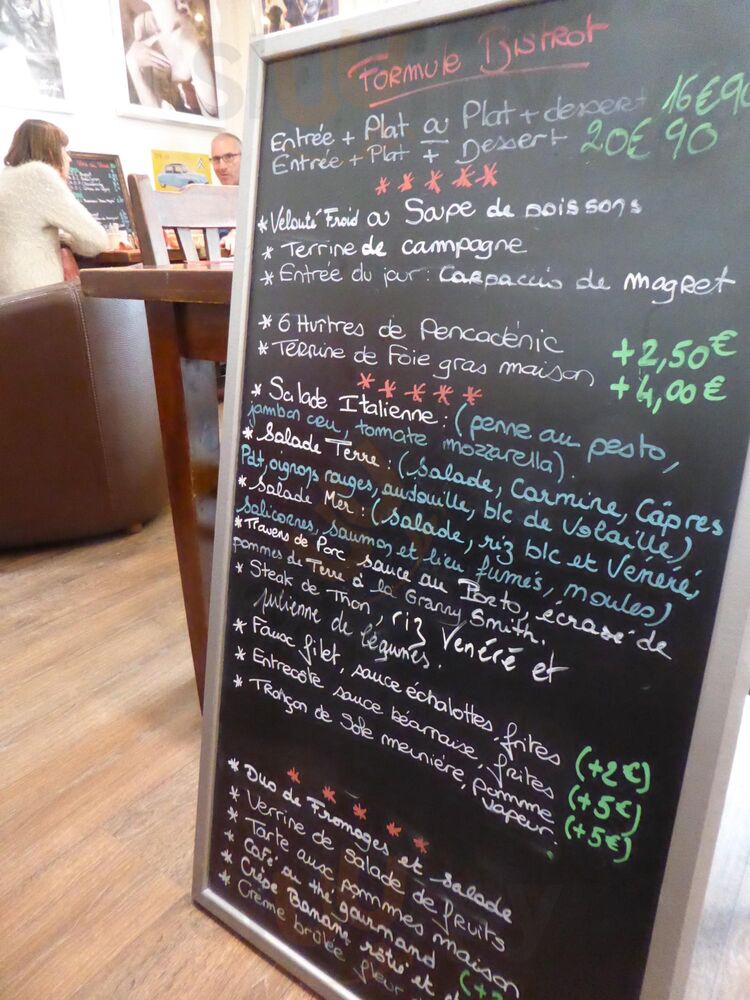 FORMULE BISTROT
Entrée + Plat ou Plat + dessert 16€90
Entrée + Plat + Dessert 20€90
* * * * *
* Velouté Froid ou Soupe de poissons
* Terrine de campagne
* Entrée du jour : Carpaccio de Magret
* 6 Huîtres de Pencadénic +2,50€
* Terrine de Foie gras maison +4,00€
* * * * *
* Salade Italienne : (penne au pesto,
jambon cru, tomate mozzarella).
* Salade Terre : (Salade, Carmine, Câpres
Pdt, oignons rouges, andouille, blc de Volaille)
* Salade Mer : (Salade, riz blc et Vénéré,
Salicornes, saumon et lieu fumés, moules)
* Travers de Porc sauce au Porto, écrasé de
pommes de Terre à la Granny Smith.
* Steak de Thon, riz Vénéré et
julienne de légumes.
* Faux filet, sauce échalottes, frites (+2€)
* Entrecote sauce béarnaise, frites (+5€)
* Tronçon de Sole meunière, pomme (+5€)
vapeur.
* * * * *
* Duo de Fromages et salade
* Verrine de salade de fruits
* Tarte aux pommes maison
* Café ou thé gourmand (+2
* Crêpe Banane rôtie et
* Crème brûlée fleur